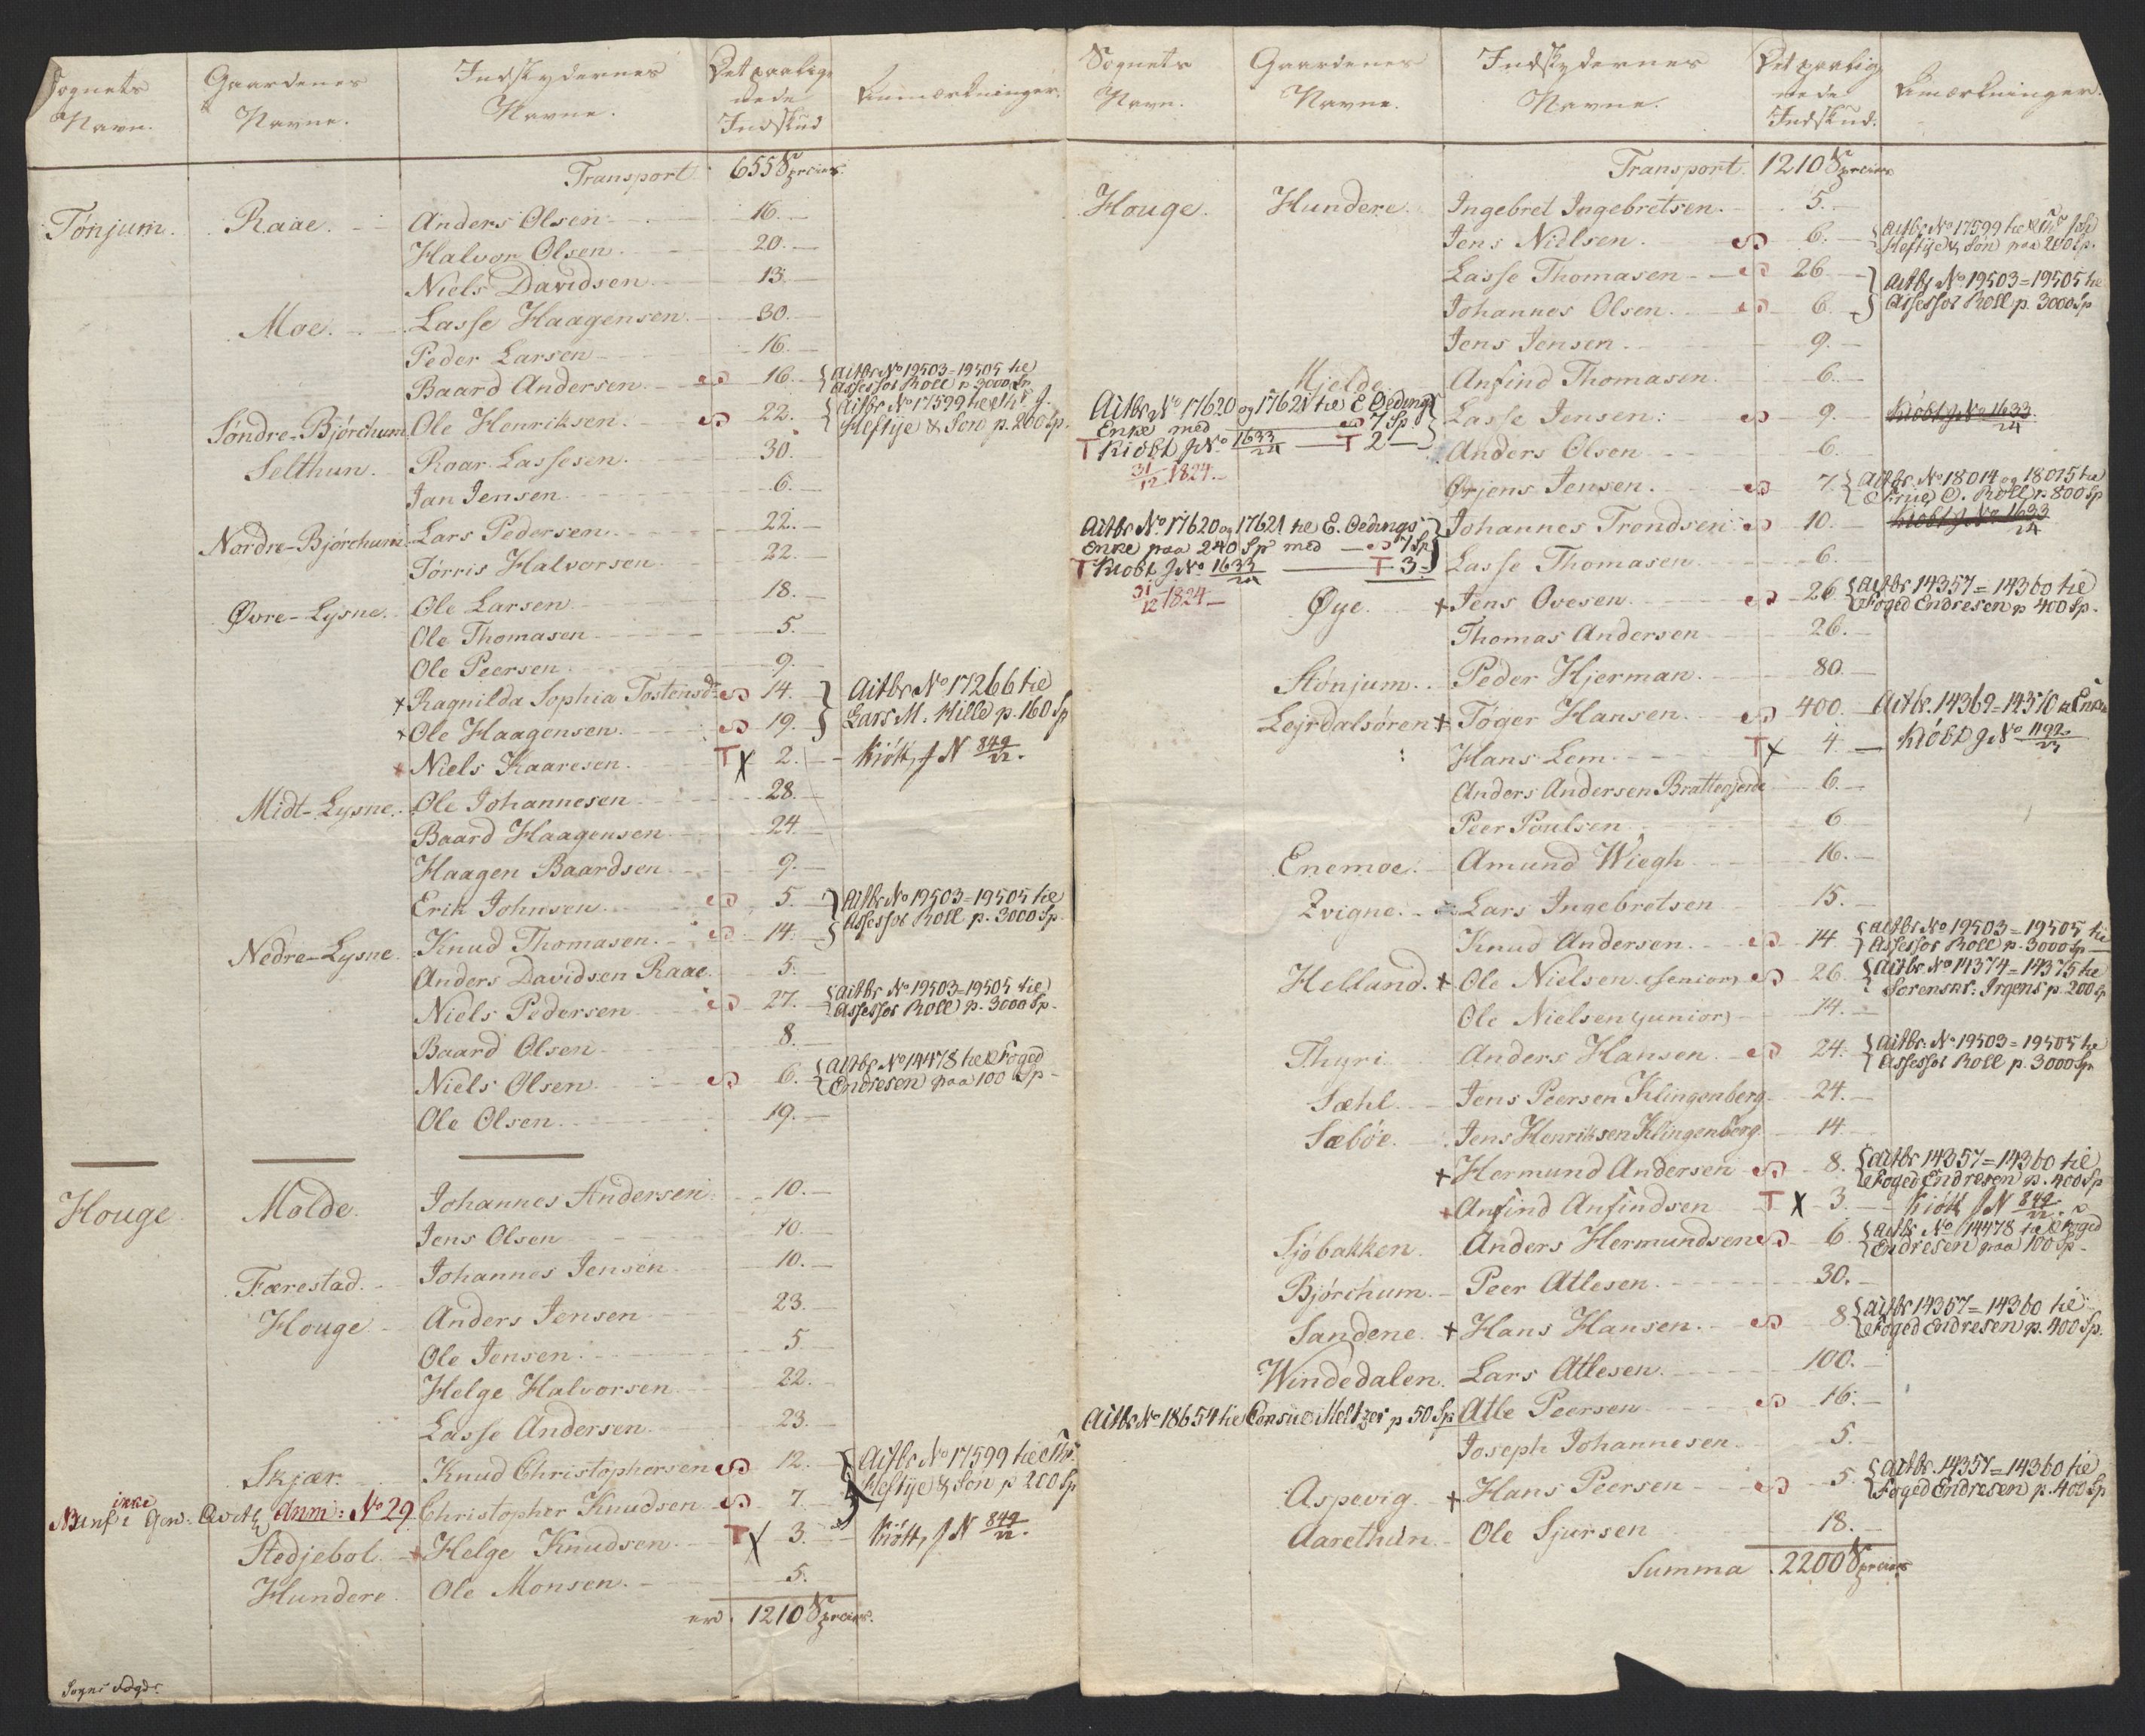 Sognets Navn. Gaardenes Navne. Indskydernes Navne. Det paalignede Indskud Anmærkninger.
Transport. 655 Species.
Tønjum. Raae. Anders Olsen 16.
Halvor Olsen 20.
Niels Davidsen 13.
Moe. Lasse Haagensen 30.
Peder Larsen 16.
Baard Andersen 16. Aitbr No 19503=19505 til
Assessor Roll p. 3000 Sp
Søndre-Bjørchum Ole Henriksen. 22. Aitbr No 17599 til
Heftije & Søn p. 200 Sp.
Selthun. Roar Lassesen. 30.
Jan Jensen 6.
Nordre-Bjørchum Lars Pedersen 22.
Torris Halvorsen 22.
Øvre-Lysne. Ole Larsen 18.
Ole Thomasen 5.
Ole Peersen 9.
+ Ragnilda Sophia Tostensdr 14. Aitbr No 17266 til
+ Ole Haagensen. 19. Lars M. Hille p. 160 Sp
+ Niels Kaaresen. T X 2. Kiøbt, J N 849/22.
Midt-Lysne. Ole Johannesen 28.
Baard Haagensen 24.
Haagen Baardsen 9.
Erik Johnsen 5. Aitbr No 19503=19505 til
Nedre-Lysne. Knud Thomasen. 14. Assessor Roll p. 3000 Sp.
Anders Davidsen Raae. 5.
Niels Pedersen 27. Aitbr No 19503=19505 til
Assessor Roll p. 3000 Sp.
Baard Olsen 8.
Niels Olsen 6. Aitbr No 14478 til Foged
Endresen paa 100 Sp
Ole Olsen. 19.
Houge Molde. Johannes Andersen 10.
Jens Olsen 10.
Færestad. Johannes Jensen 10.
Houge Anders Jensen 23.
Ole Jensen. 5.
Helge Halvorsen 22.
Lasse Andersen 23.
Skjær. Knud Christophersen 12. Aitbr No 17599 til
ikke Anm: No 29. Christopher Knudsen 7. Heftije & Søn p 200 Sp
Stedjebol. + Helge Knudsen T X 3. Kiøbt, J N 849/22.
Hundere Ole Monsen. 5.
1210 Species.
Sogns Fogdr.
Sognets Navn. Gaardenes Navne. Indskydernes Navne. Det paalignede Indskud. Anmærkninger.
Transport. 1210 Species
Houge. Hundere. Ingebret Ingebretsen. 5.
Jens Nielsen. 6. Aitbr No 17599 til
Heftije & Søn paa 200 Sp.
Lasse Thomasen 26 Aitbr No 19503=19505 til
Johannes Olsen. 6. Assessor Roll p. 3000 Sp
Jens Jensen. 9.
Hjelde Anfind Thomasen. 6.
Aitbr No 17620 og 17621 til E Oedings Lasse Jensen: 9. Kiøbt J No 1633/24
Enke med 7 Sp
T Kiøbt J No 1633/24 T 2 Anders Olsen 6.
31/12 1824. Ørjens Jensen. 7. Aitbr. No 18014 og 18015 til
Frue C. Roll p. 800 Sp
Aitbr No. 17620 og 17621 til E. Oedings Johannes Trondsen 10. Kiøbt J No 1633/24
Enke paa 240 Sp med 7 Sp
T Kiøbt J No 1633/24 T 3 Lasse Thomasen 6.
31/12 1824 Øye. + Jens Ovesen. 26. Aitbr 14357=14360 til
Foged Endresen p 400 Sp.
Thomas Andersen 26.
Stønjum. Peder Hjerman. 80.
Leirdalsøren + Tøger Hansen. 400. Aitbr. 14369=14370 til Enke
Hans Lem. T X 4. Kiøbt J No 1192/23
Anders Andersen Brattegjerde 6.
Peer Poulsen 6
Enemoe. Amund Wiegh 16.
Qvigne. Lars Ingebretsen 15.
Knud Andersen. 14. Aitbr No 19503=19505 til
Assessor Roll p. 3000 Sp
Helland. + Ole Nielsen (senior) 26. Aitbr No 14374=14375 til
Sorenskr: Irgens p. 200 Sp
Ole Nielsen (junior) 14.
Thyri Anders Hansen. 24. Aitbr. No 19503=19505 til
Assessor Roll p. 3000 Sp
Sæhl. Jens Peersen Klingenberg. 24.
Sæbøe. Jens Henriksen Klingenberg. 14.
+ Hermund Andersen 8. Aitbr 14357=14360 til
Foged Endresen p. 400 Sp
+ Anfind Anfindsen T X 3. Kiøbt J N 849/22.
Sjøbakken. Anders Hermundsen 6. Aitbr No 14478 til Foged
Endresen paa 100 Sp
Bjørchum. Peer Atlesen. 30.
Sandene. + Hans Hansen. 8. Aitbr 14357=14360 til
Foged Endresen p. 400 Sp.
Windedalen. Lars Atlesen. 100.
Aitbr No 18654 til Consul Meltzer p 50 Sp. Atle Peersen 16.
Joseph Johannesen 5.
Aspevig. + Hans Peersen 5. Aitbr. 14357=14360 til
Foged Endresen p. 400 Sp
Aarethun. Ole Sjursen 18.
Summa 2200 Species